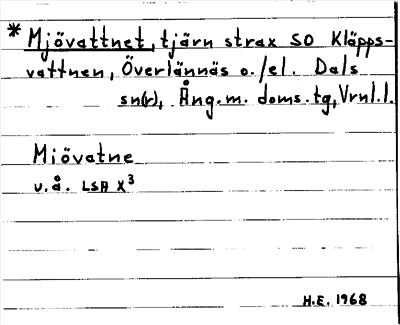 * Mjövattnet, tjärn strax SO Kläpps-
vattnen, Överlännäs o./el. Dals
sn(r), Ång.m. doms.tg, Vrnl.l.
Miövatne
u.å. LSA X³
H.E. 1968